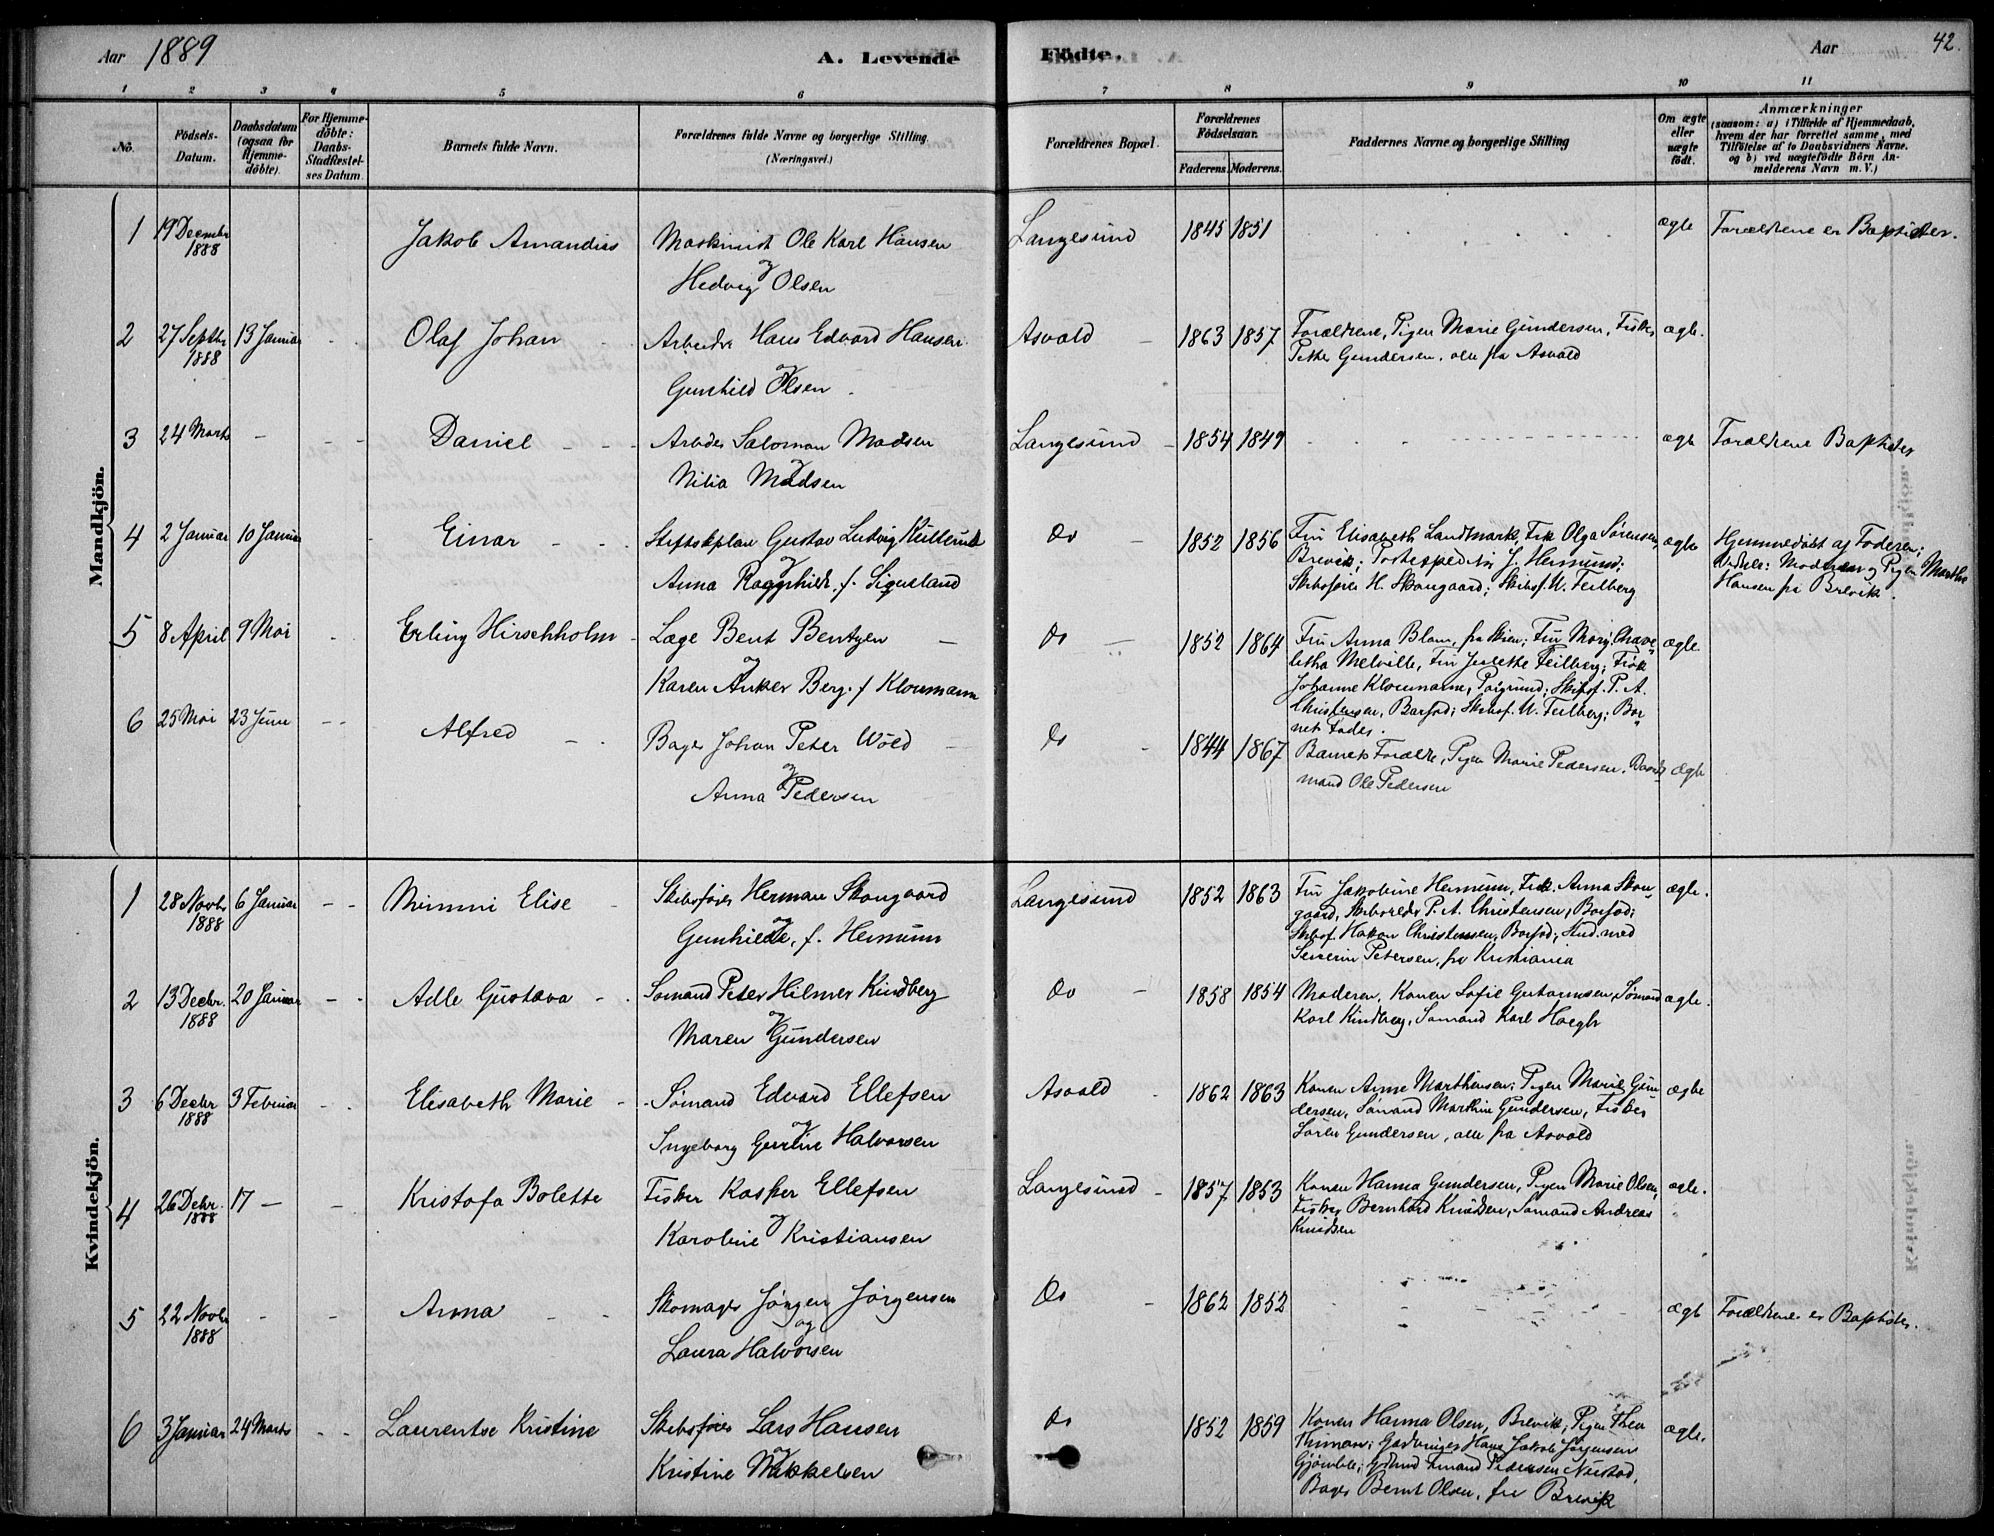 Aar 1889
A. Levende
Födte.
Aar
42.
1 2 3 4 5 6 7 8 9 10 11
No.
Födsels-
Datum.
Daabsdatum
(ogsaa for
Hjemme-
döbte)
For Hjemme-
döbte:
Daabs-
Stadfæstel-
ses Datum.
Barnets fulde Navn.
Forældrenes fulde Navne og borgerlige Stilling.
(Næringsvei.)
Forældrenes Bopæl.
Forældrenes
Födselsaar.
Faderens. Moderens.
Faddernes Navne og borgerlige Stilling
Om ægte
eller
uægte
födt.
Anmærkninger
(saasom: a) i Tilfælde af Hjemmedaab,
hvem der har forrettet samme, med
Tilföielse af to Daabsvidners Navne.
og b) ved uægtefödte Börn An-
melderens Navn m.V.)
Mandkjön.
1 19 Decembr 1888 Jakob Amandias Maskinist Ole Karl Hansen Langesund 1845 1851 ægte Forældrene er Baptister.
og
Hedvig Olsen
2 27 Septbr 1888 13 Januar Olaf Johan Arbeider Hans Edvard Hansen Asvald 1863 1857 Forældrene, Pigen Marie Gundersen, Fisker ægte.
Petter Gundersen, alle fra Asvald
og
Gunhild Olsen
3 24 Marts Daniel Arbeider Salomon Madsen Langesund 1854 1849 ægte Forældrene Baptister
og
Nilia Madsen
4 2 Januar 10 Januar Einar Stiftskplan Gustav Ludvig Do 1852 1856 Fru Elisabeth Landmark, Frk Olga Sørensen, ægte Hjemmedøbt af Faderen;
Brevik; Postexpeditør J. Hermund; Moderen og Pigen Marthe
Skibsfører H. Skougaard; Skibsf. W. Feilberg Hansen fra Brevik.
og
Anna Ragnhild f. Sigueland
5 8 April 9 Mai Erling Hirschholm Læge Bent Bentzen Do 1852 1864 Fru Anna Blom, fra Skien; Fru Mary ægte
Melville, Fru Feilberg; Frøk
Johanne Kloumann, Porsgrund; Skibsf. P. A.
Christensen, Barfod; Skibsf. W. Feilberg; Bar
nets Fader.
og
Karen Anker Berg f Kloumann
6 25 Mai 23 Juni Alfred Bager Johan Peter Wold Do 1844 1867 Barnets Forældre, Pigen Marie Pedersen, ægte
mand Ole Pedersen
og
Anna Pedersen
Kvindekjön.
1 28 Novbr 1888 6 Januar Mimmi Elise Skibsfører Herman Skougaard Langesund 1852 1863 Fru Jakobine Hermum, Frk. Anna Skou ægte.
gaard, Skibsreder P. A. Christensen, Barfod;
Skibsf. Hakon Christensen, Barfod; Stud. med
Severin Petersen, fra Kristiania
og
Gunhilde, f. Hermum
2 13 Decbr. 1888 20 Januar Adle Gustava Sømand Peter Hilmer Kindberg Do 1858 1854 Moderen, Konen Sofie Gutormsen, Sømand ægte.
Karl Kindberg, Sømand Karl Høegh
og
Maren Gundersen
3 6 Decbr 1888 3 Februar Elisabeth Marie Sømand Edvard Ellefsen Asvald 1862 1863 Konen Anne Marthinsen; Pigen Marie Gun ægte
dersen, Sømand Marthin Gundersen, Fisker
Søren Gundersen, alle fra Asvald
og
Ingeborg Gurine Halvorsen
4 26 Decbr. 1888 17 — Kristofa Bolette Fisker Kasper Ellefsen Langesund 1857 1853 Konen Hanna Gundersen, Pigen Marie Olsen, ægte.
Fisker Bernhard Knudsen, Sømand Andreas
Knudsen
og
Karoline Kristiansen
5 22 Novbr 1888 Anna Skomager Jørgen Jørgensen Do 1862 1852 ægte Forældrene er Baptister.
og
Laura Halvorsen
6 3 Januar 24 Marts Laurentse Kristine Skibsfører Lars Hansen Do 1852 1859 Konen Hanna Olsen, Brevik; Pigen Thea ægte.
Thiman; Hans Jakob Jørgensen
Pedersen
Bager Bernt Olsen, fra Brevik
og
Kristine Mikkelsen